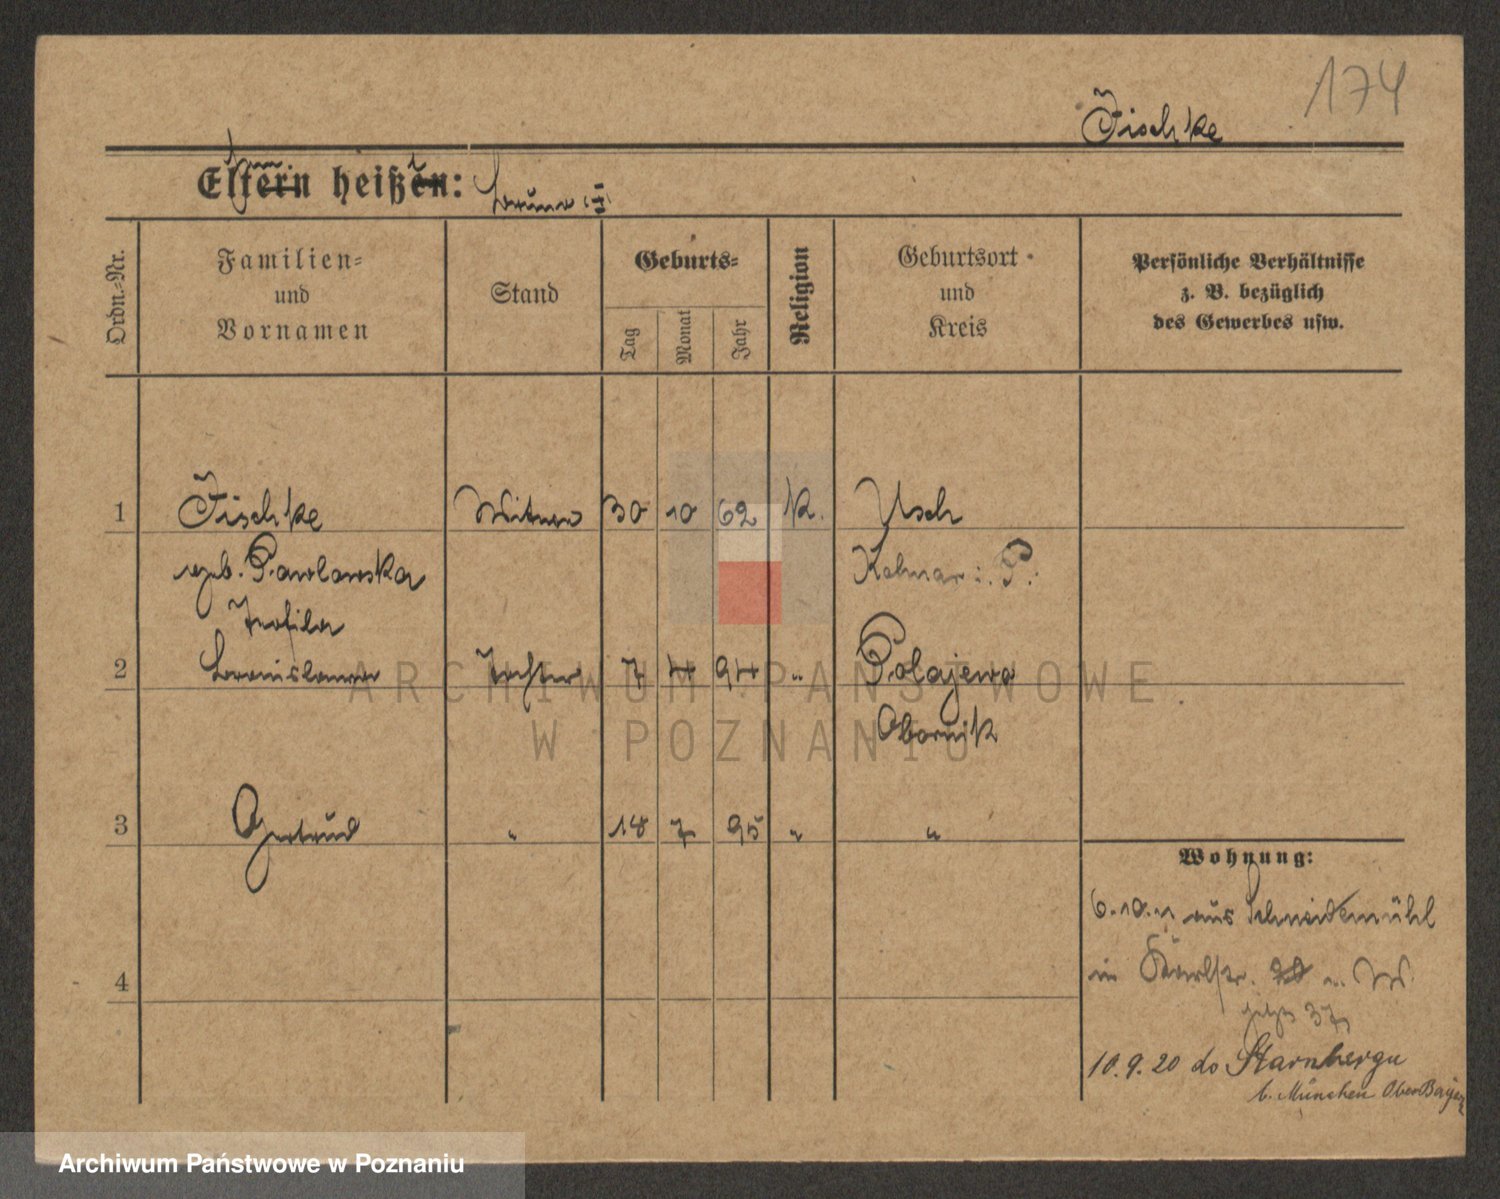 174
Fischke
Eltern heißen:
Ordn.-Nr.
Familien-
und
Vornamen
Stand
Geburts-
Tag
Monat
Jahr
Religion
Geburtsort
und
Kreis
Persönliche Verhältnisse
z. B. bezüglich
des Gewerbes usw.
1 Fischke Witwe 30 10 62 K. Usch
geb. Pawlowska Kolmar i. P.
Teofila
2 Bronislawa Tochter 7 4 94 " Polajewo
Obornik
3 Gertrud " 18 7 95 " "
Wohnung:
6.10.11 aus Schneidemühl
4
in Karlstr.
jetzt 37
10.9.20 do Starnbergu
b. München Ober Bayern
ARCHIWUM PAŃSTWOWE
W POZNANIU
Archiwum Państwowe w Poznaniu